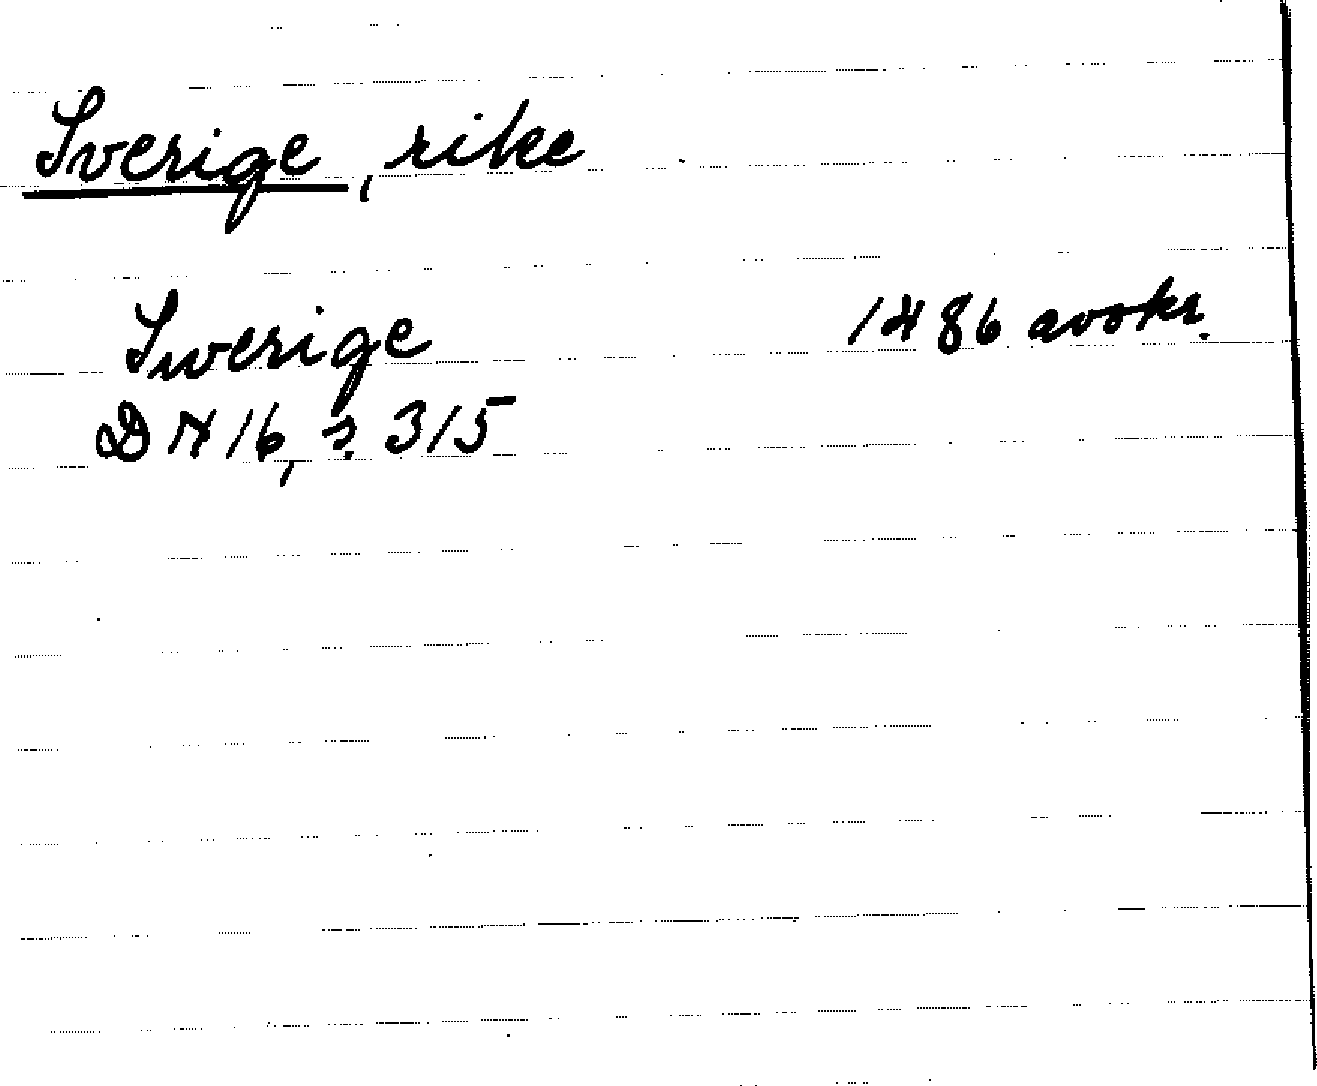 Sverige, rike
Swerige 1486 avskr.
DN 16, s. 315